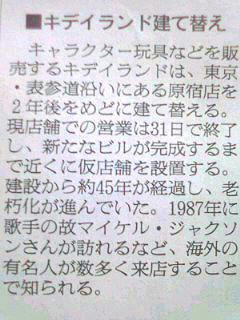 ■キデイランド建て替え
キャラクター玩具などを販
売するキデイランドは、東京
・表参道沿いにある原宿店を
2年後をめどに建て替える。
現店舗での営業は31日で終了
し、新たなビルが完成するま
で近くに仮店舗を設置する。
建設から約45年が経過し、老
朽化が進んでいた。1987年に
歌手の故マイケル・ジャクソ
ンさんが訪れるなど、海外の
有名人が数多く来店すること
で知られる。